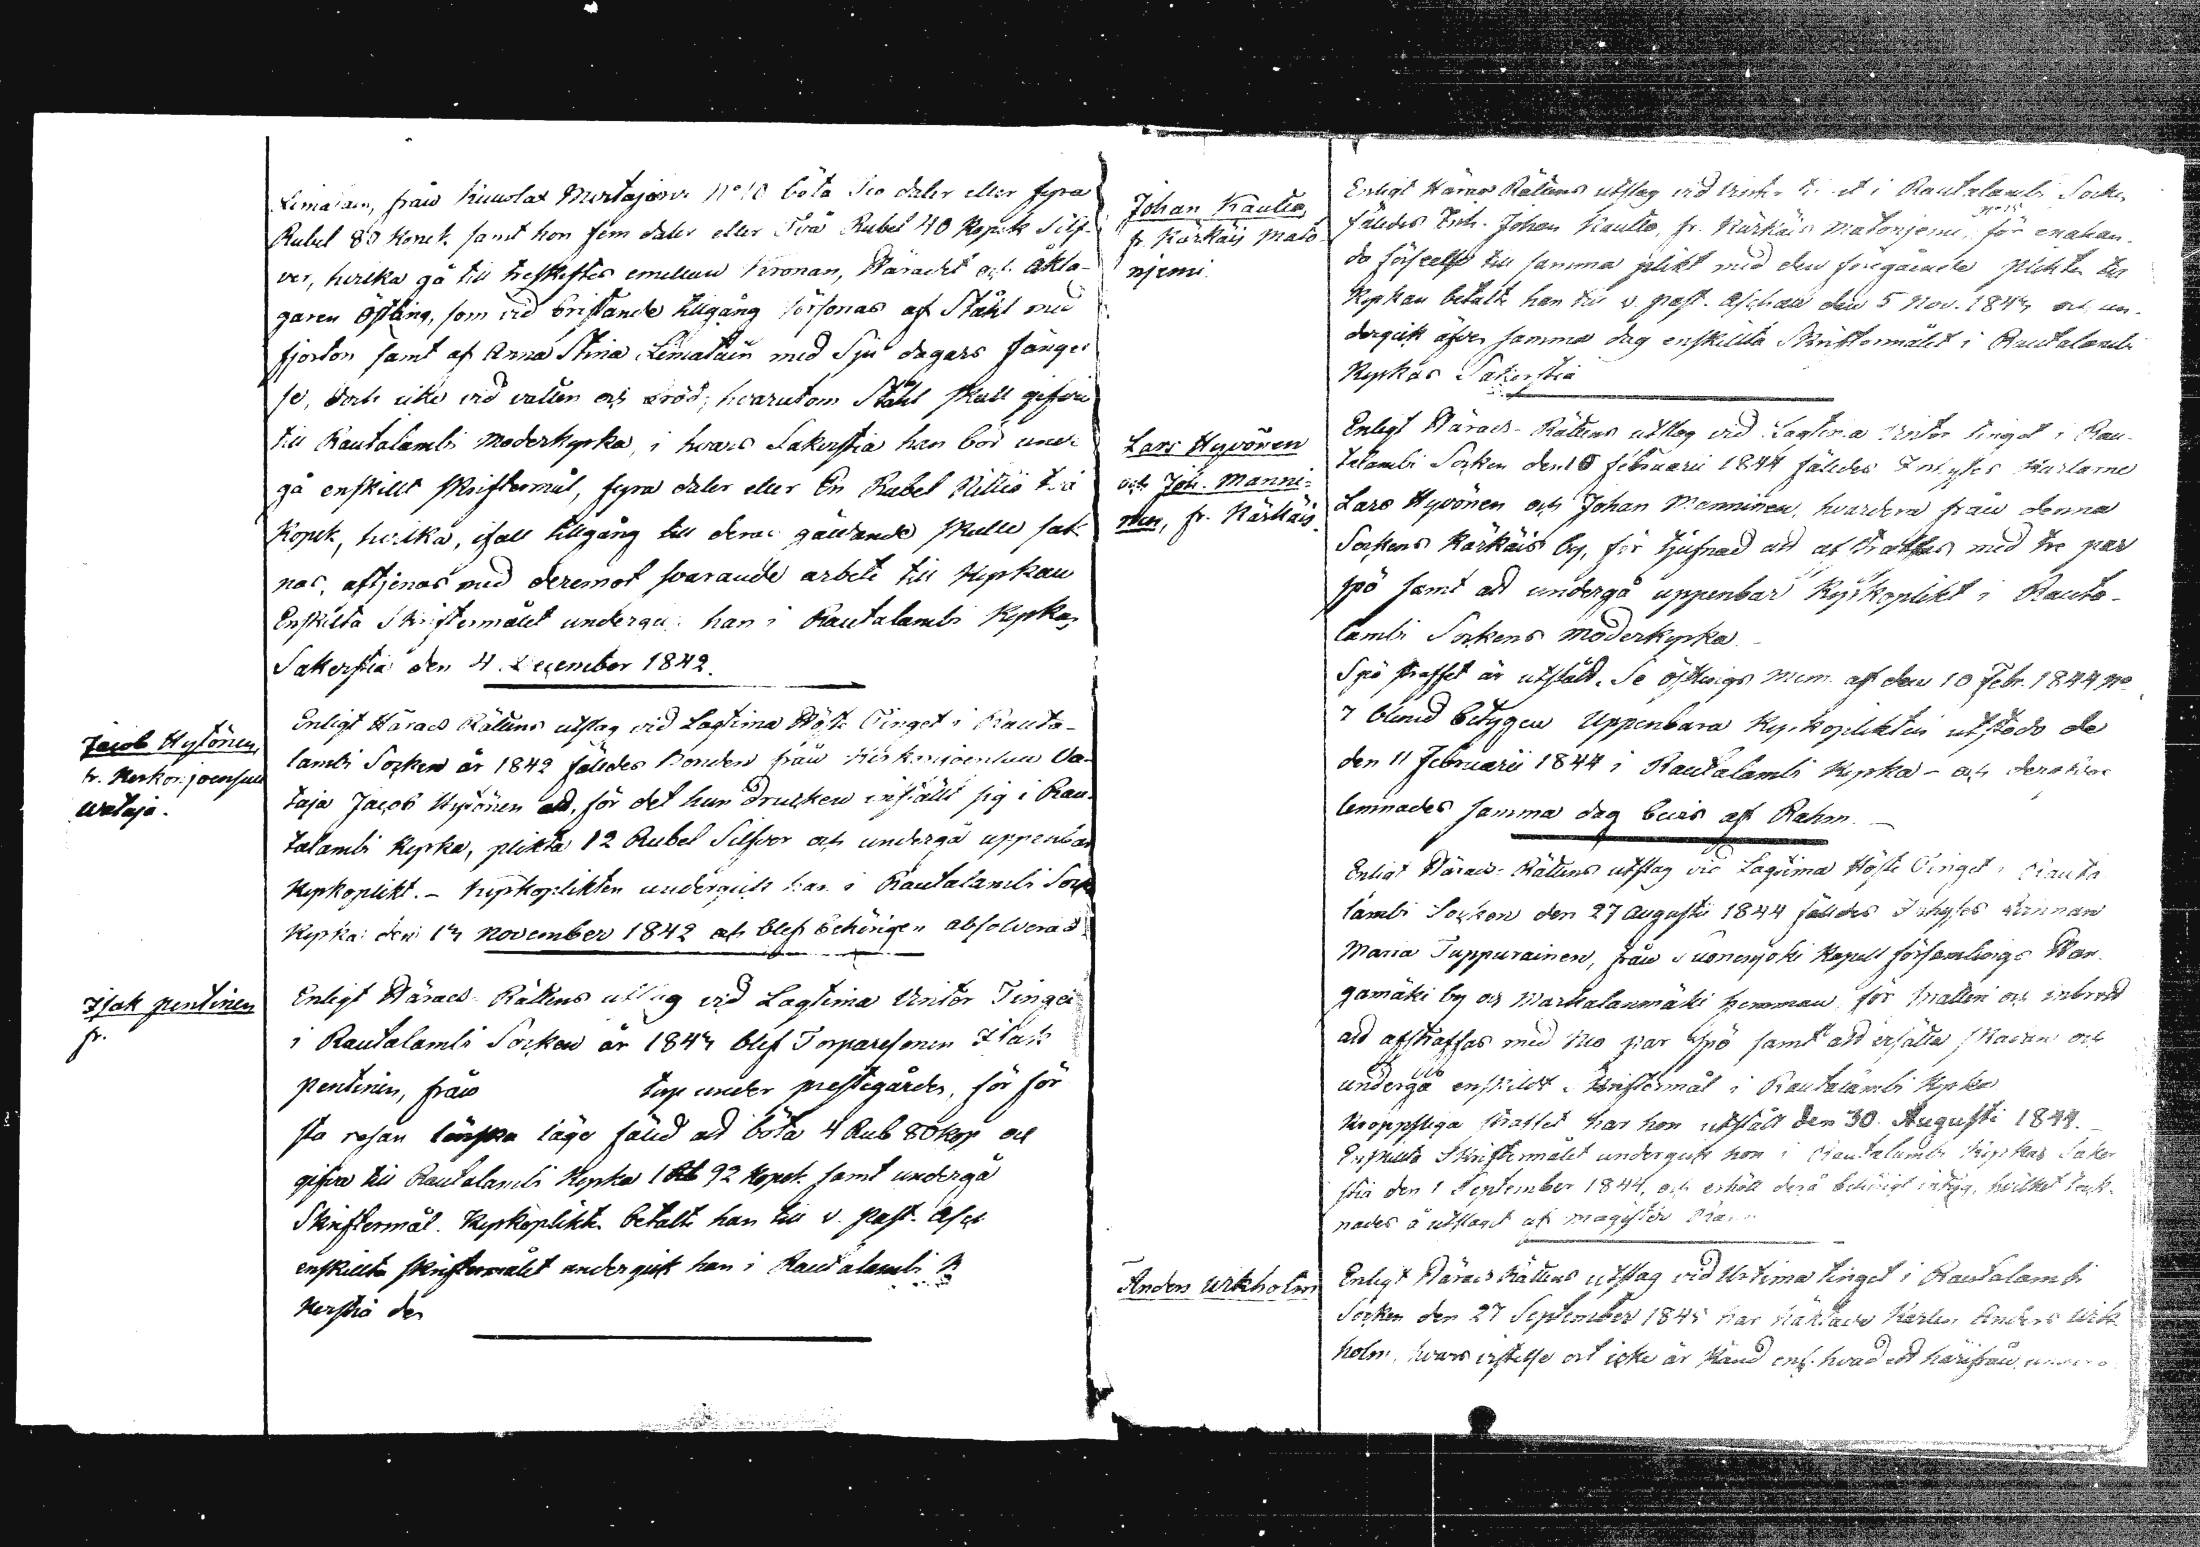 från Mustajärvi No 10 böta Tio daler eller fyra
Rubel 80 Kopek samt hon fem daler eller Två Rubel 40 Kopek Silf-
ver, hvilka gå till treskiftes emellan Kronan, Häradet och åkla-
garen Östling, som vid bristande tillgång försonas af Ståhl med
fjorton samt af Anna Stina Limatain med Sju dagars fängel
se, dock icke vid vatten och bröd; hvarutom Ståhl skall gifva
till Rautalambi Moderkyrka, i hvars Sakerstia han bör under
gå enskillt skriftermål, fyra daler eller En Rubel Nittio två
Kopek, hvilka, ifall tillgång till deras gäldande skulle sak
nas, aftjenas med deremot svarande arbete till Kyrkan
Enskilta Skriftermålet undergick han i Rautalambi Kyrkas
Sakerstia den 4 December 1842.
Jacob Hytönen,
fr. Kerkonjoensuu
Wataja.
Enligt Härads Rättens utslag vid Lagtima Höste Tinget i Rauta-
lambi Socken år 1842 fälldes Bonden från Kerkonjoensuu Va-
taja Jacob Hytönen att, för det han drucken inställt sig i Rau-
talambi Kyrka, plikta 12 Rubel Silfver och undergå uppenbar
Kyrkoplikt. - Kyrkoplikten undergick han i Rautalambi Sock
Kyrka den 13 November 1842 och blef behörigen absolverad
Isak Pentinen
fr.
Enligt Härads Rättens utslag vid Lagtima Vinter Tinget
i Rautalambi Socken år 1843 blef Torparesonen Isak
Pentinen, från torp under prestegården, för för
sta resan lönska läge fälld att böta 4 Rub 80 kop och
gifva till Rautalambi Kyrka 1 Rb 92 Kopek samt undergå
Skriftermål. Kyrkoplikten betalte han till v. Past.
enskillta skriftermålet undergick han i Rautalambi K
kerstia den
Johan Kautto,
fr. Kärkäis Mato-
njemi.
Enligt Härads Rättens utslag vid Vinter tinget i Rautalambi Socken
fälldes Inh. Johan Kautto, fr. Kärkäis Matonjemi No 15, för enahan-
da förseelse till samma plikt med den föregående plikten till
Kyrkan betalte han till v. past. Aschan den 5 Nov. 1843 och un-
dergick äfven samma dag enskillta Skriftermålet i Rautalambi
Kyrkas Sakerstia
Lars Hyvönen
och Joh. Manni-
nen, fr. Kärkäis.
Enligt Härads-Rättens utslag vid Lagtima Vinter tinget i Rau-
talambi Socken den februarii 1844 fälldes Inhyses Karlarne
Lars Hyvönen och Johan Manninen, hvardera från denna
Sockens Kärkäis by, för tjufnad att afstraffas med tre par
spö samt att undergå uppenbar Kyrkoplikt i Rauta-
lambi Sockens Moderkyrka.
Spö straffet är utståldt. Se Östlings Mem. af den 10 Febr. 1844 No
7 bland betygen Uppenbara Kyrkoplikten utstodo de
den 11 Februarii 1844 i Rautalambi Kyrka - och deröfver
lemnades samma dag bevis af Rahm. -
Enligt Härads-Rättens utslag vid Lagtima Höste Tinget i Rauta
lambi Socken den 27 Augusti 1844 fälldes Inhyses qvinnan
Maria Tuppurainen, från Suonenjoki Kapell församlings Han-
gamäki by och Markalanmäki hemman, för snatteri och inbrott
att afstraffas med par spö samt att ersätta skadan och
undergå enskildt Skriftermål i Rautalambi Kyrka
Kroppsliga straffet har hon utstått den 30 Augusti 1844. -
Enskillta Skriftermålet undergick hon i Rautalambi Kyrkas Saker
stia den 1 September 1844, och erhöll derå behörigt intyg, hvilket teck-
nades å utslaget af Magister
Anders Wikholm
Enligt Härads Rättens utslag vid Urtima tinget i Rautalambi
Socken den 27 September 1845 har häktade Karlen Anders Wik
holm, hvars vistelse ort icke är känd